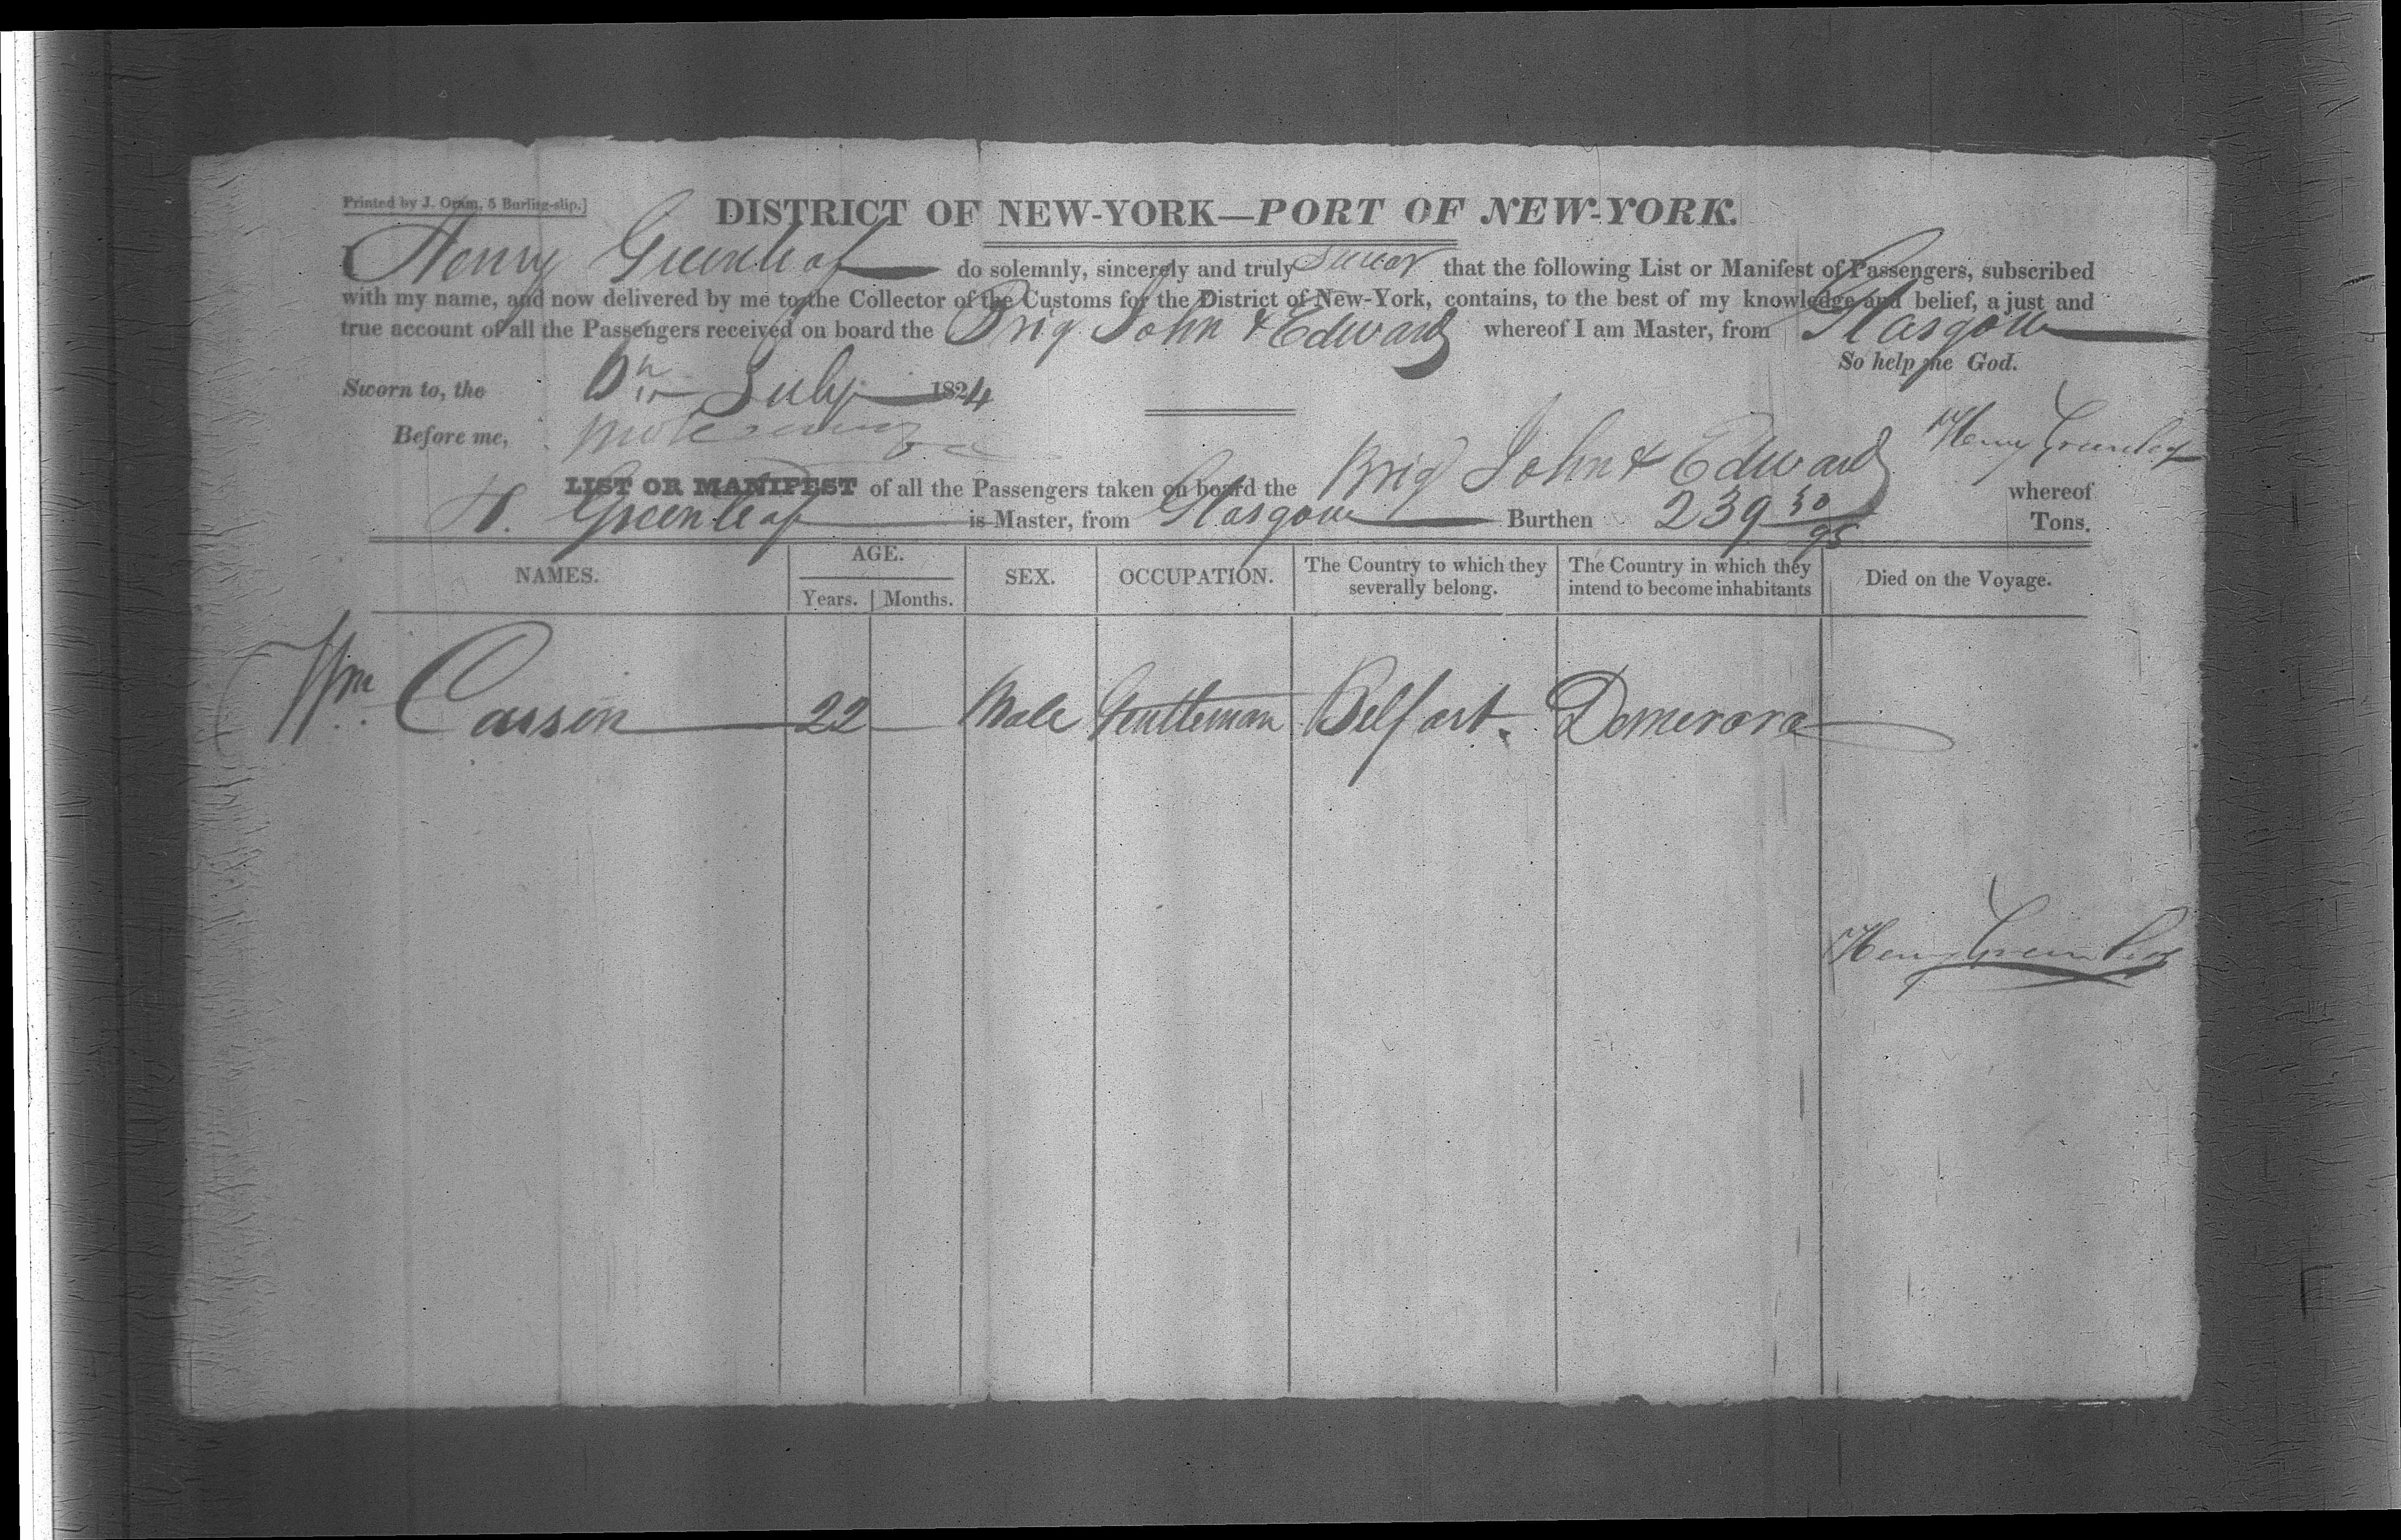 Printed by J. Oram, 5 Burling-slip.]
DISTRICT OF NEW-YORK—PORT OF NEW-YORK.
I Henry Greenleaf do solemnly, sincerely and truly Swear that the following List or Manifest of Passengers, subscribed
with my name, and now delivered by me to the Collector of the Customs for the District of New-York, contains, to the best of my knowledge and belief, a just and
true account of all the Passengers received on board the Brig John & Edward whereof I am Master, from Glasgow
So help me God.
Sworn to, the 6th July 1824
Before me,
Henry Greenleaf
LIST OR MANIFEST of all the Passengers taken on board the Brig John & Edward whereof
H. Greenleaf is Master, from Glasgow Burthen 239 50/95 Tons.
NAMES. AGE. Years. Months. SEX. OCCUPATION. The Country to which they severally belong. The Country in which they intend to become inhabitants Died on the Voyage.
Wm Cassin 22 Male Gentleman Belfast. Demerara
Henry Greenleaf